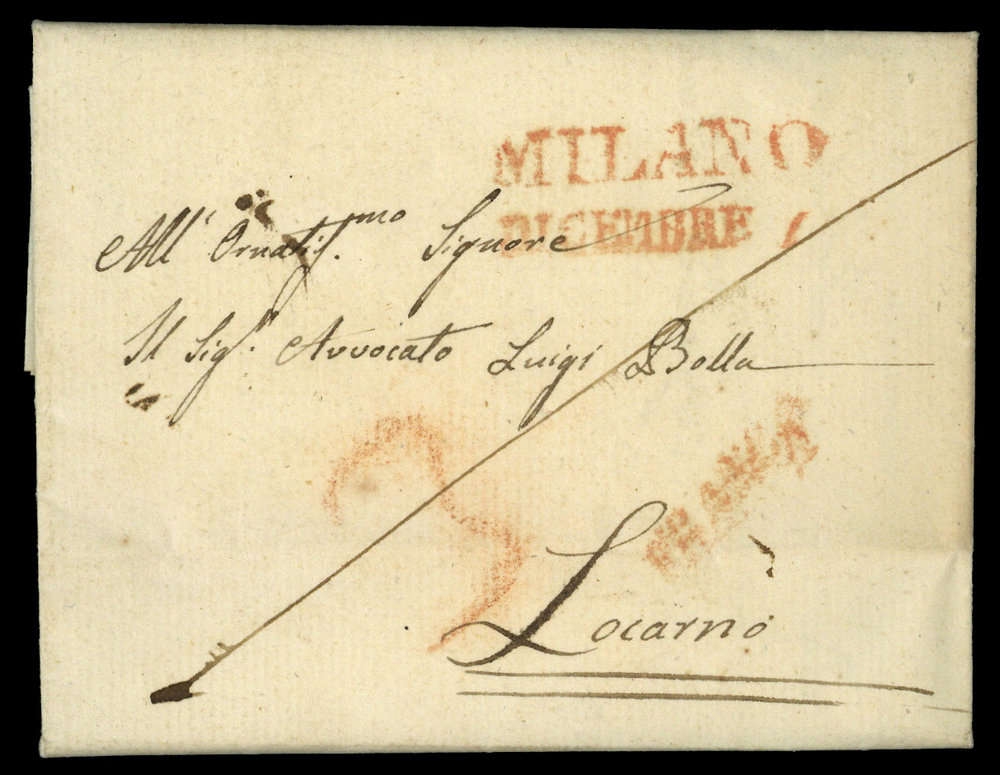 MILANO
DICEMBRE
All' Ornatiss.mo Signore
Il Sig.r Avvocato Luigi Bolla
FRANCA
3
Locarno